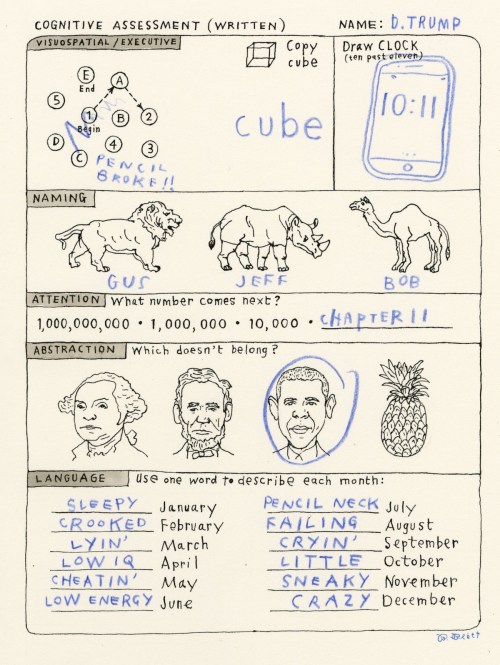 COGNITIVE ASSESSMENT (WRITTEN) NAME: D. TRUMP
VISUOSPATIAL / EXECUTIVE
E
End
A
5
1
Begin
B
2
D
C
4
3
PENCIL
BROKE!!
Copy
cube
cube
Draw CLOCK
(ten past eleven)
10:11
NAMING
GUS JEFF BOB
ATTENTION What number comes next?
1,000,000,000 • 1,000,000 • 10,000 • CHAPTER 11
ABSTRACTION Which doesn't belong?
LANGUAGE Use one word to describe each month:
SLEEPY January
CROOKED February
LYIN' March
LOW IQ April
CHEATIN' May
LOW ENERGY June
PENCIL NECK July
FAILING August
CRYIN' September
LITTLE October
SNEAKY November
CRAZY December